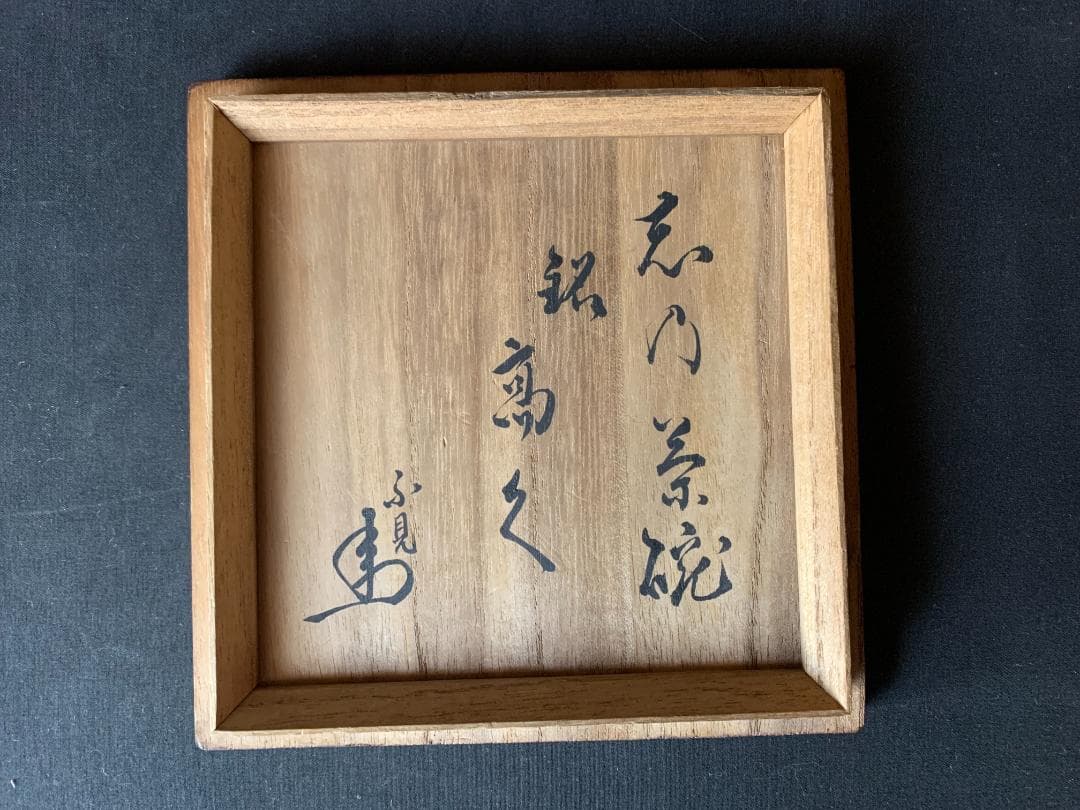 志乃茶碗
銘
高久
不見